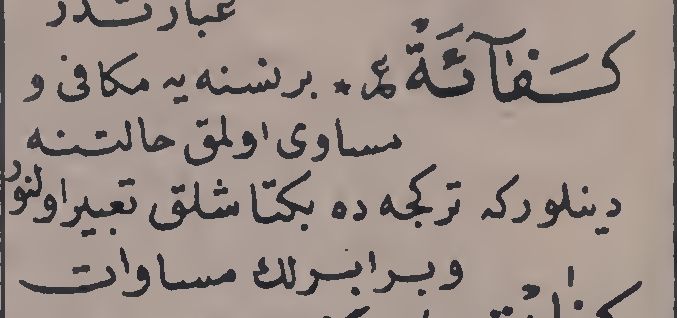 عبارتدر
كَفَآئَةٌ ع * برنسنه یه مكافی و
مساوی اولمق حالتنه
دینلوركه تركجه ده بكتاشلق تعبیر اولنور
وبرابرلك مساوات